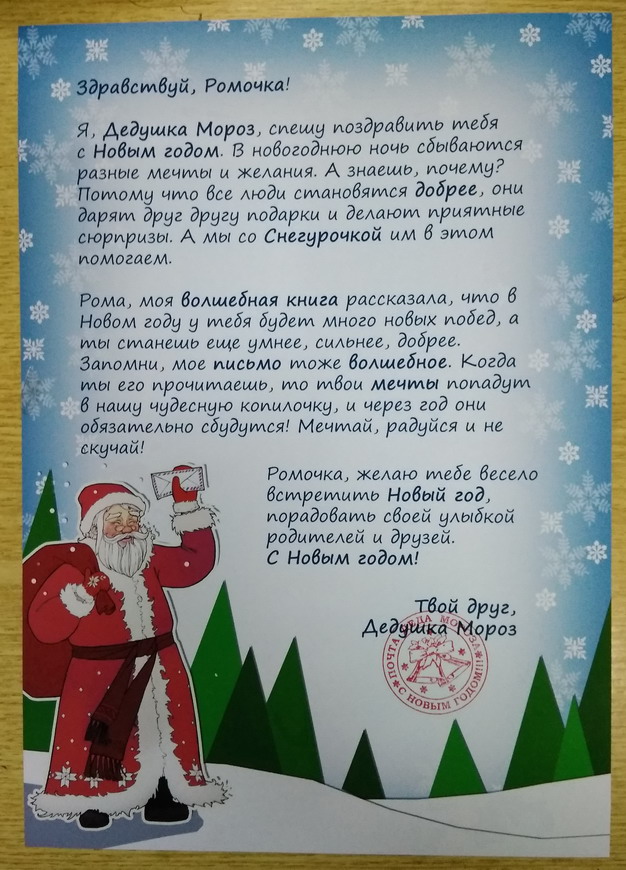 Здравствуй, Ромочка!
Я, Дедушка Мороз, спешу поздравить тебя
с Новым годом. В новогоднюю ночь сбываются
разные мечты и желания. А знаешь, почему?
Потому что все люди становятся добрее, они
дарят друг другу подарки и делают приятные
сюрпризы. А мы со Снегурочкой им в этом
помогаем.
Рома, моя волшебная книга рассказала, что в
Новом году у тебя будет много новых побед, а
ты станешь еще умнее, сильнее, добрее.
Запомни, мое письмо тоже волшебное. Когда
ты его прочитаешь, то твои мечты попадут
в нашу чудесную копилочку, и через год они
обязательно сбудутся! Мечтай, радуйся и не
скучай!
Ромочка, желаю тебе весело
встретить Новый год,
порадовать своей улыбкой
родителей и друзей.
С Новым годом!
Твой друг,
Дедушка Мороз
ПОЧТА ДЕДА МОРОЗА
С НОВЫМ ГОДОМ!!!